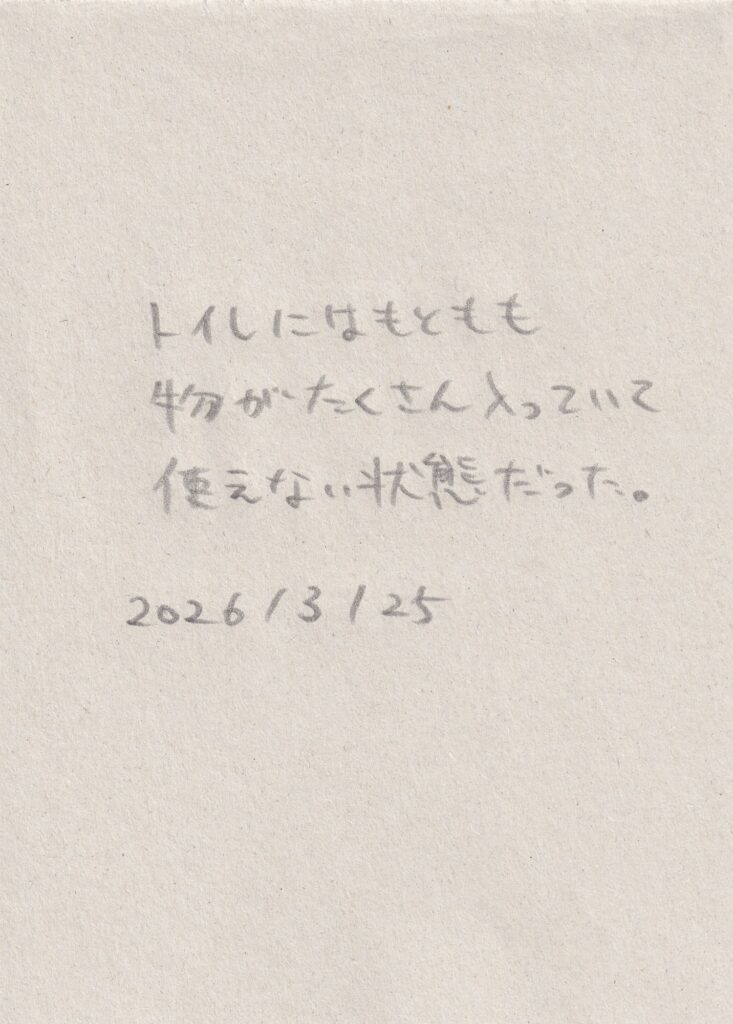 トイレにはもともも
物がたくさん入っていて
使えない状態だった。
2026/3/25